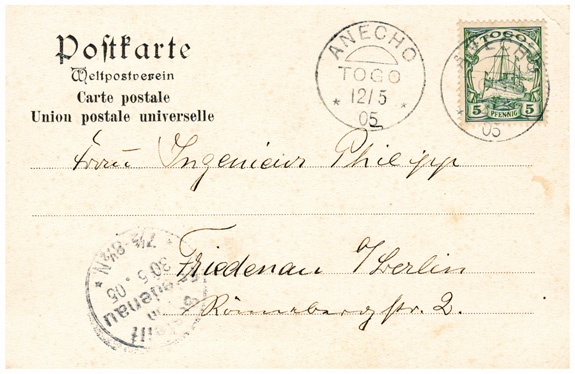 Postkarte
Weltpostverein
Carte postale
Union postale universelle
ANECHO
TOGO
12/5
05
TOGO
5 PFENNIG 5
05
Frau Ingenieur Philipp
Friedenau a/Berlin
Rönnebergstr. 2.
7½-8½N
30.5.05
Friedenau